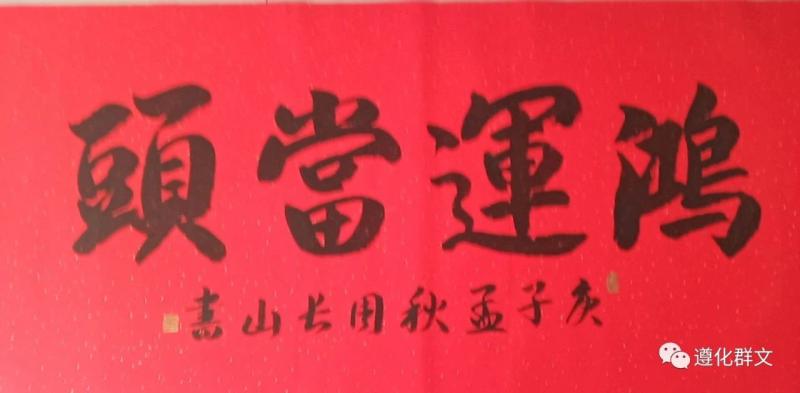 鴻運當頭
庚子孟秋周长山書
遵化群文